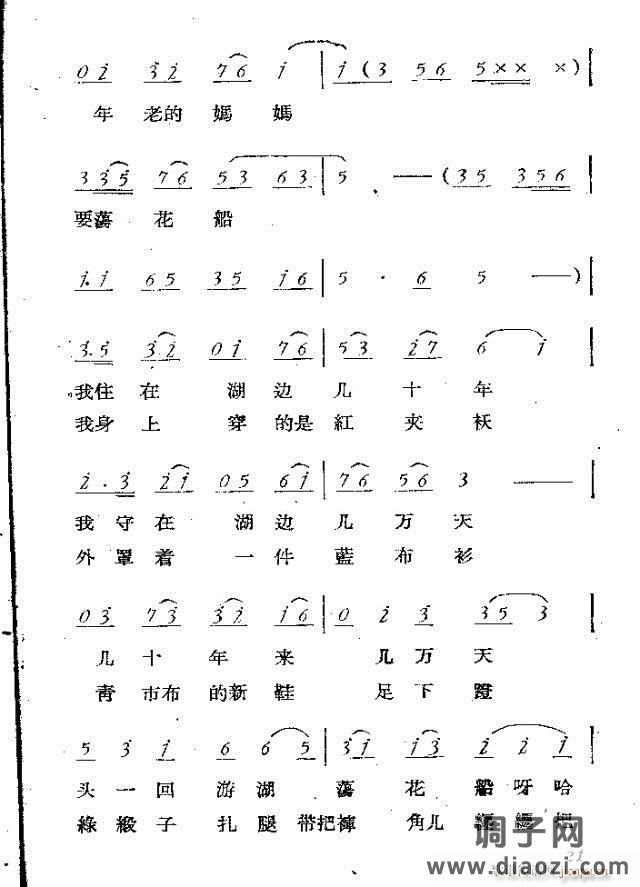 0 2 3 2 7 6 1 | 1 ( 3 5 6 5 × × × ) |
年老的媽媽
3 3 5 7 6 5 3 6 3 | 5 — ( 3 5 3 5 6 |
要蕩花船
1. 1 6 5 3 5 1 6 | 5 · 6 5 — ) |
3. 5 3 2 0 1 7 6 | 5 3 2 7 6 1 |
我住在湖边几十年
我身上穿的是紅夹袄
2 . 3 2 1 0 5 6 1 | 7 6 5 6 3 — |
我守在湖边几万天
外罩着一件藍布衫
0 3 7 3 3 2 1 6 | 0 2 3 3 5 3 |
几十年来几万天
青市布的新鞋足下蹬
5 3 1 6 6 5 | 3 1 1 3 2 2 1 |
头一回游湖蕩花船呀哈
綠緞子扎腿带把褲角儿
調子网
www.diaozi.com
21